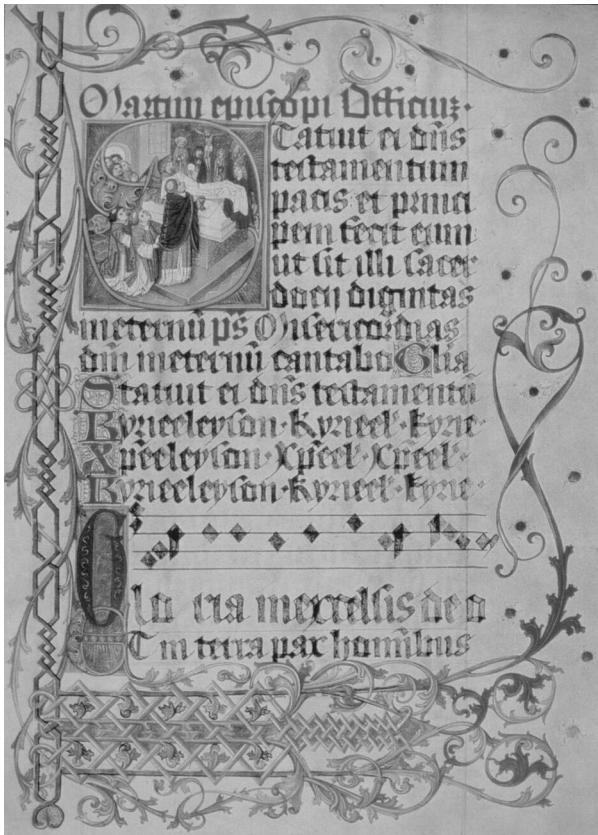 Martini episcopi Officiuꝫ.
Statuit ei dn̄s
testamentum
pacis et princi
pem fecit eum
ut sit illi sacer
docij dignitas
ineternū ps̄ Misericordias
dnī ineternū cantabo Glīa
Statuit ei dn̄s testamentū
Kyrieeleyson · kyrieel̕ · kyrie ·
Xp̄eeleyson · Xp̄eel̕ · Xp̄eel̕ ·
Kyrieeleyson · kyrieel̕ · kyrie ·
Glo ria inexcelsis de o
Et in terra pax homīnibus